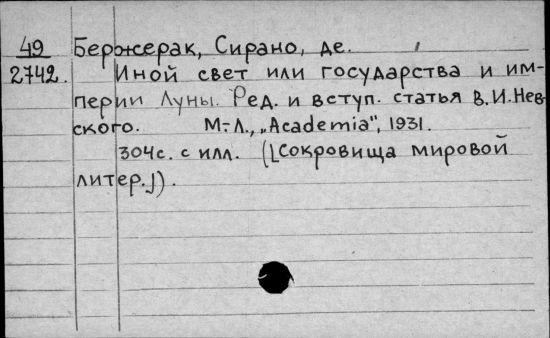 49 Бержерак, Сирано, де.
2742. Иной свет или государства и им-
перии Луны. Ред. и вступ. статья В.И. Нев-
ского. М.-Л., „Academia", 1931.
304с. с илл. ([Сокровища мировой
литер.]).